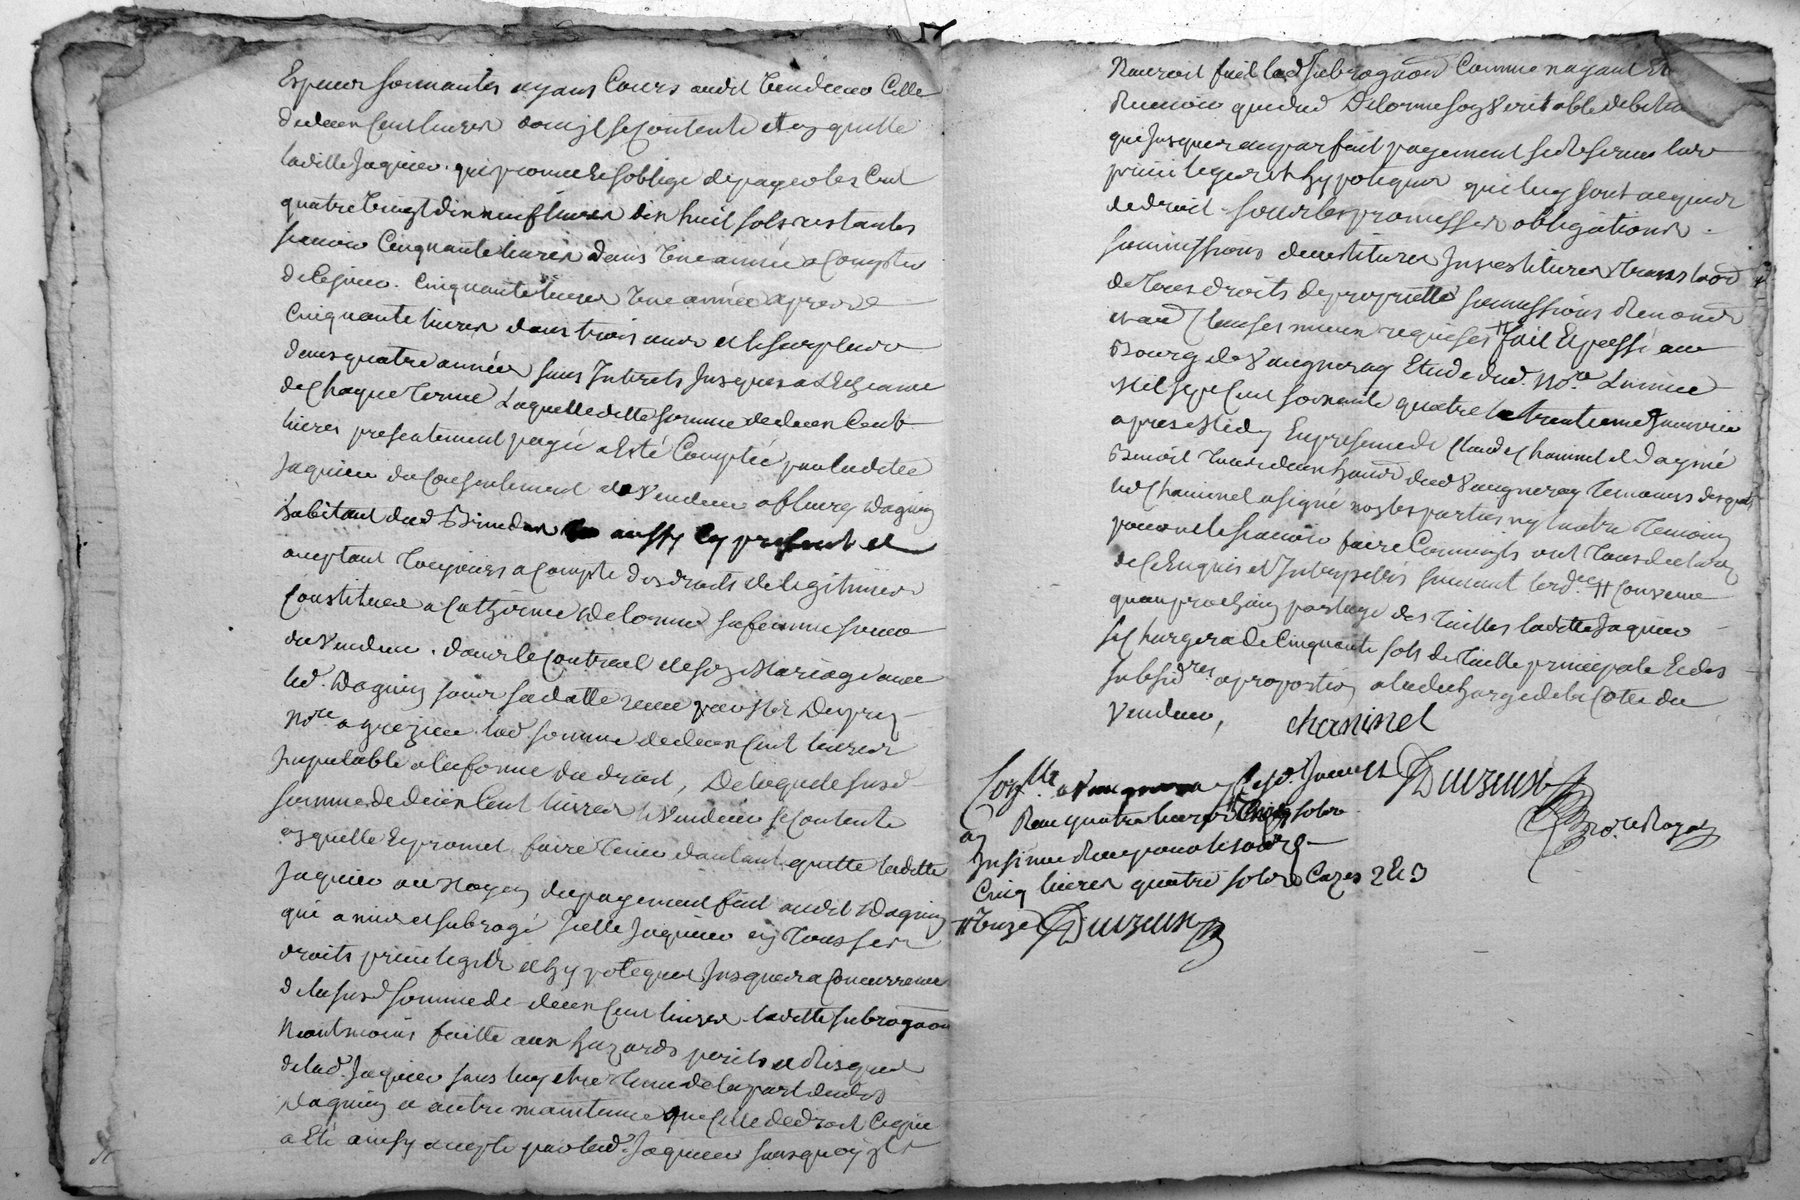 Especes sonnantes ayans Cours audit Vendeur Celle
de deux Cent livres dont jl se Contente et en quitte
laditte Jaquier. qui promet et soblige de payer les Cent
quatre vingt dix neuf livres dix huit sols restantes
scavoir Cinquante livres dans Une année a Compter
de Ce jour. Cinquante livres Une année apres et
Cinquante livres dans trois ans et le surplus
dans quatre années sans Interets Jusques a l'Echeance
de Chaque terme Laquelle ditte somme de deux Cent
livres presentement payée a Esté Comptée par laditte
Jaquier du Consentement du Vendeur a fleury Dagnin
habitant dud aussy Cy present et
acceptant Toujours a Compte des droits de legitimes
Constitués a Catherine Delorme sa femme soeur
du Vendeur. dans le Contract de son Mariage avec
led. Dagnin sous sa datte receu par
Nore a lad. somme de deux Cent livres
Imputable a la forme du droit, De laquelle susd
somme de deux Cent livres le Vendeur se Contente
en quitte Et promet faire tenir d'autant quitte laditte
Jaquier au Moyen du payement fait audit Dagnin
qui a mis et subrogé jcelle Jaquier en tous ses
droits privileges et hypoteques Jusques a Concurrence
de la susd somme de deux Cent livres. laditte subrogaon
Neantmoins faitte aux hazards perils et Risques
de lad. Jaquier sans luy etre tenu de la part dudit
Dagnin a autre maintenue que Celle de droit Ce qui
a Eté ainsy accepté par lad. Jaquier sans quoy jl
Nauroit fait lad subrogaon Comme nayant
Renoncé quedud Delorme son Veritable debiteur
qui Jusques au parfait payement se Reserve les
privileges et hypoteques qui luy sont acquis
de droit. sous les promesses obligations
soumissions devestitures Jnvestitures translaon
de tous droits de proprietté soumissions Renonons
et au Clauses mieux requises # fait Et passé au
Bourg de Vaugneray Etude dud. Nore L'année
Mil sept Cent soixante quatre le trentieme Janvier
apres Midy En presence de Claude Chaninel et Daymé
Benoit dud Vaugneray temoins desquels
led Chaninel a signé non les parties ny l'autre temoin
pour ne le scavoir faire Comme jls ont tous declaré
de Ce Enquis et Interpellés suivant lordce # Convenu
quau prochain partage des tailles laditte Jaquier
se Chargera de Cinquante sols de taille principale Et des
subsidres a proportion a la decharge de la Cotte du
Vendeur, chaninel
Conlle a Vaugneray
Receu quatre livres sols
Insinué Receu pour le
Cinq livres quatre sols Cazes 2 et 3